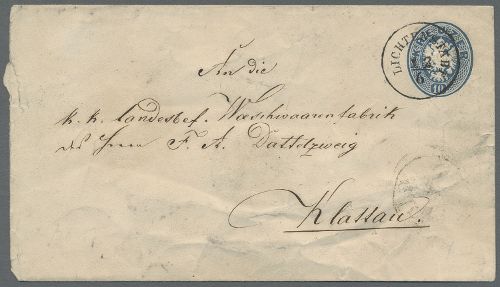 LICHTENSTADT
10
An die
k. k. Landesbef. Wäschwaarenfabrik
des Herrn F. A. Dattelzweig
Klattau.